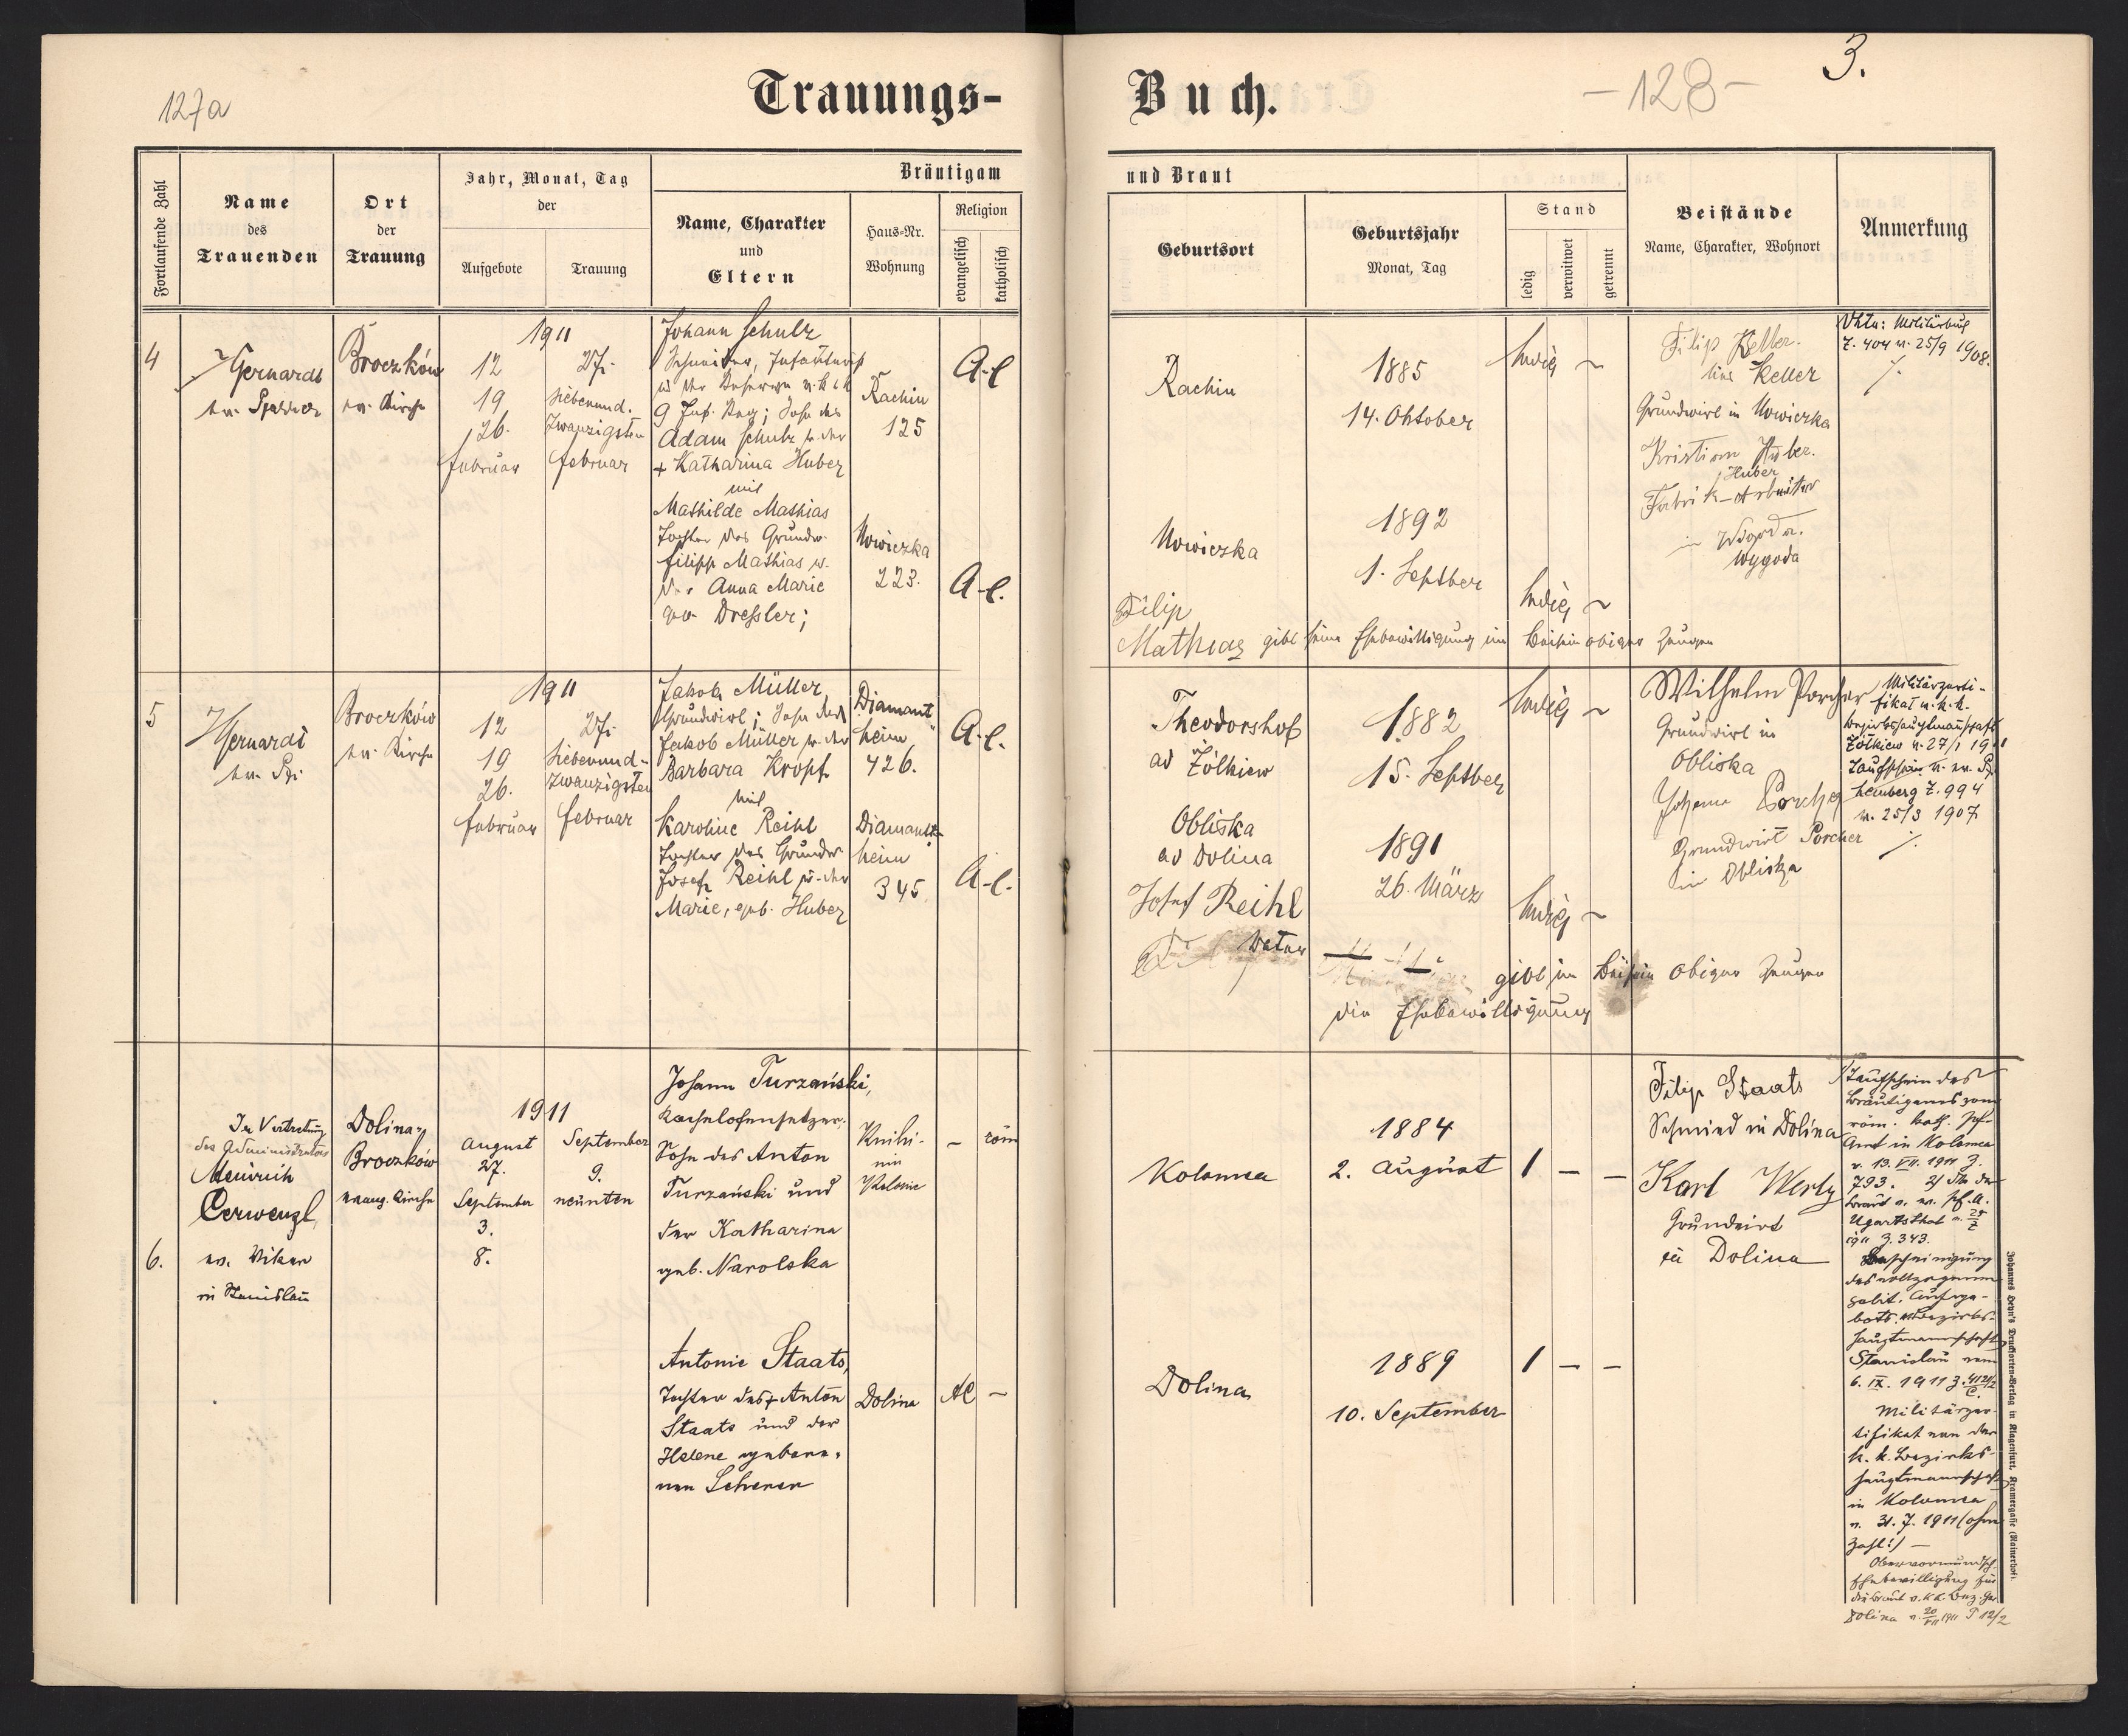 127a
Trauungs-
Fortlaufende Zahl
Name
des
Trauenden
Ort
der
Trauung
Jahr, Monat, Tag
der
Aufgebote
Trauung
Bräutigam
Name, Charakter
und
Eltern
Haus-Nr.
Wohnung
Religion
evangelisch
katholisch
4
Broczków
ev. Kirche
1911
12
19
26.
Februar
27.
siebenund-
zwanzigsten
Februar
Johann Schulz
9 Inf. Reg; Sohn des
Adam Schulz u. der
+ Katharina Huber
mit
Mathilde Mathias
Tochter des Grundw.
Filipp Mathias u.
der Anna Marie
geb. Dressler;
Rachin
125
Nowiczka
223.
A-C
A-C.
5
Broczków
ev. Kirche
1911
12
19
26.
Februar
27.
siebenund-
zwanzigsten
Februar
Jakob Müller,
Grundwirt; Sohn des
Jakob Müller u. der
Barbara Kropf
mit
Karoline Reihl
Tochter des Grundw.
Josef Reihl u. der
Marie, geb. Huber
Diamant
heim
426.
Diamant-
heim
345.
A.C.
A-C.
6.
In Vertretung
des Administrators
Heinrich
Cerwenzl,
ev. Vikar
in Stanislau
Dolina-
Broczków
evang. Kirche
1911
August
27.
September
3.
8.
September
9.
neunten
Johann Turzański,
Kachelofensetzer,
Sohn des Anton
Turzański und
der Katharina
geb. Narolska
Knihi-
nin
Kolonie
– röm
Antonie Staats,
Tochter des + Anton
Staats und der
Helene gebore-
nen Scherer
Dolina
AC –
Buch.
-128-
3.
und Braut
Geburtsort
Geburtsjahr
Monat, Tag
Stand
ledig
verwitwet
getrennt
Beistände
Name, Charakter, Wohnort
Anmerkung
Rachin
1885
14. Oktober
ledig
Filip Keller.
Keller
Grundwirt in Nowiczka
Kristian Huber.
Huber
Fabrik-Arbeiter
in
Wygoda
Z. 404 v. 25/9 1908.
Nowiczka
1892
1. Septber
ledig
Filip
Mathias gibt seine Ehebewilligung im Beisein obiger Zeugen
Theodorshof
ad Żółkiew
1882
15. Septber
ledig
Wilhelm Porcher
Grundwirt in
Obliska
Johann Porcher
Grundwirt Porcher
in Obliska
Militärzerti-
fikat v. k. k.
Bezirkshauptmannschaft
Żółkiew v. 27/1 1911
Taufschein v. ev. Pf.
Lemberg Z. 994
v. 25/3 1907
Obliska
ad Dolina
1891
26. März
ledig
Josef Reihl
Vater
gibt im Beisein obiger Zeugen
die Ehebewilligung
Kolomea
1884
2. August
1 – –
Filip Staats
Schmied in Dolina
Karl Werly
Grundwirt
in Dolina
Dolina
1889
10. September
1 – –
1/ Taufschein des
Bräutigams vom
röm. kath. Pfr-
Amt in Kolomea
v. 13. VII. 1911 Z.
793.
Ugartsthal
1911 Z. 343.
Bescheinigung
des vollzogenen
polit. Aufge-
bots. Bezirks-
hauptmannschaft
Stanislau vom
6. IX. 1911 Z.
Militärzer-
tifikat von der
k. k. Bezirks-
hauptmannschaft
in Kolomea
v. 31. 7. 1911 (ohne
Zahl!) –
Obervormundsch.
Ehebewilligung für
die Braut v. k k Bez. Ger.
Dolina
Johannes Heyn's Drucksorten-Verlag in Klagenfurt, Kramergasse